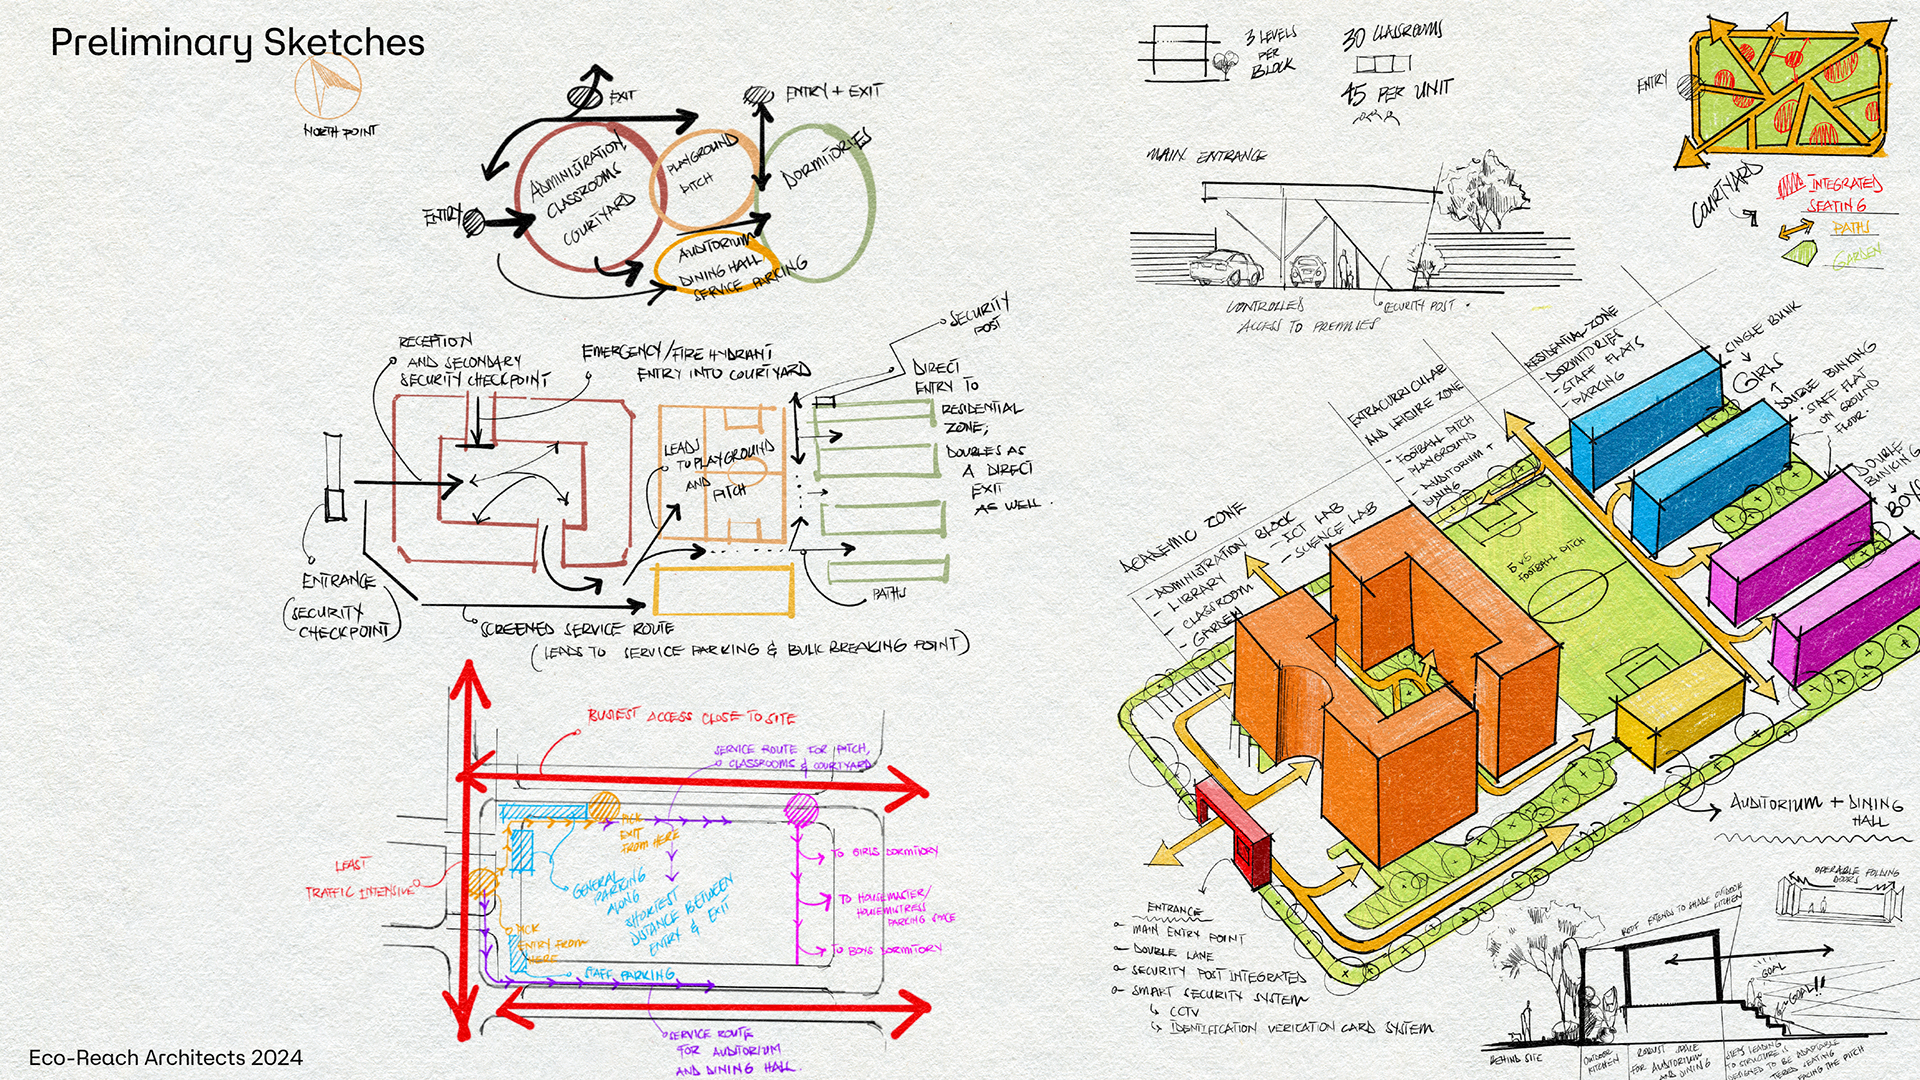 Preliminary Sketches
NORTH POINT
EXIT
ENTRY + EXIT
ENTRY
ADMINISTRATION,
CLASSROOMS
COURTYARD
PLAYGROUND
PITCH
DORMITORIES
AUDITORIUM
DINING HALL
SERVICE PARKING
RECEPTION
AND SECONDARY
SECURITY CHECKPOINT
EMERGENCY/FIRE HYDRANT
ENTRY INTO COURTYARD
SECURITY
POST
DIRECT
ENTRY TO
RESIDENTIAL
ZONE;
DOUBLES AS
A DIRECT
EXIT
AS WELL.
LEADS
TO PLAYGROUND
AND
PITCH
ENTRANCE
(SECURITY
CHECKPOINT)
PATHS
SCREENED SERVICE ROUTE
(LEADS TO SERVICE PARKING & BULK BREAKING POINT)
BUSIEST ACCESS CLOSE TO SITE
SERVICE ROUTE FOR PITCH,
CLASSROOMS & COURTYARD
LEAST
TRAFFIC INTENSIVE
PICK
EXIT
FROM HERE
GENERAL
PARKING
ALONG
SHORTEST
DISTANCE BETWEEN
ENTRY &
EXIT
PICK
ENTRY FROM
HERE
STAFF PARKING
TO GIRLS DORMITORY
TO HOUSEMASTER/
HOUSEMISTRESS
PARKING SPACE
TO BOYS DORMITORY
SERVICE ROUTE
FOR AUDITORIUM
AND DINING HALL.
Eco-Reach Architects 2024
3 LEVELS
PER
BLOCK
30 CLASSROOMS
45 PER UNIT
MAIN ENTRANCE
CONTROLLED
ACCESS TO PREMISES
SECURITY POST
ENTRY
COURTYARD
INTEGRATED
SEATING
PATHS
GARDEN
RESIDENTIAL ZONE
- DORMITORIES
- STAFF FLATS
- PARKING
EXTRACURRICULAR
AND LEISURE ZONE
- FOOTBALL PITCH
PLAYGROUND
- AUDITORIUM +
DINING
ACADEMIC ZONE
- ADMINISTRATION BLOCK
- LIBRARY
- CLASSROOM
- GARDEN
- ICT LAB
- SCIENCE LAB
SINGLE BUNK
GIRLS
DOUBLE BUNKING
STAFF FLAT
ON GROUND
FLOOR.
DOUBLE
BUNKING
BOYS
5 V 5
FOOTBALL PITCH
AUDITORIUM + DINING
HALL
ENTRANCE
MAIN ENTRY POINT
DOUBLE LANE
SECURITY POST INTEGRATED
SMART SECURITY SYSTEM
CCTV
IDENTIFICATION VERICATION CARD SYSTEM
OPERABLE FOLDING
DOORS
ROOF EXTENDS TO SHADE OUTDOOR
KITCHEN
GOAL
GOAL!!
BEHIND SITE
OUTDOOR
KITCHEN
ROBUST SPACE
FOR AUDITORIUM
AND DINING
STEPS LEADING
TO STRUCTURE IS
DESIGNED TO BE ADAPTABLE
TIERED SEATING
FACING THE PITCH